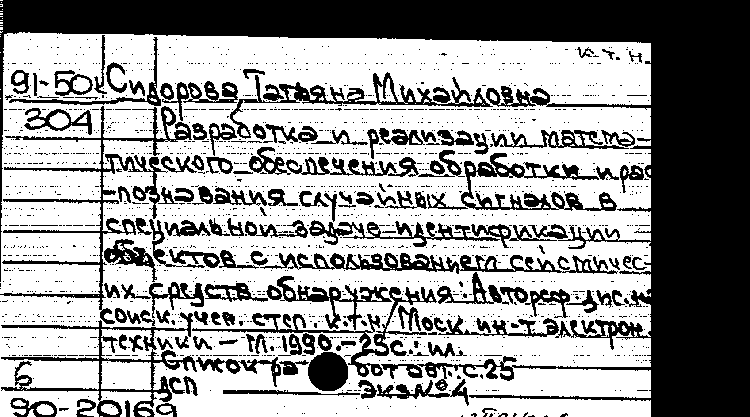 к. т. н.
91-50 Сидорова Татьяна Михайловна
304 Разработка и реализации матема-
тического обеспечения обработки и рас
-познавания случайных сигналов в
специальной задаче идентификации
объектов с использованием сейсмичес-
их средств обнаружения: Автореф. дис. на
соиск. учен. степ. к.т.н/ Моск. ин-т электрон.
техники – М. 1990.-25с.: ил.
6 Список ра бот авт.: с.25
ДСП экз№4
90-20169